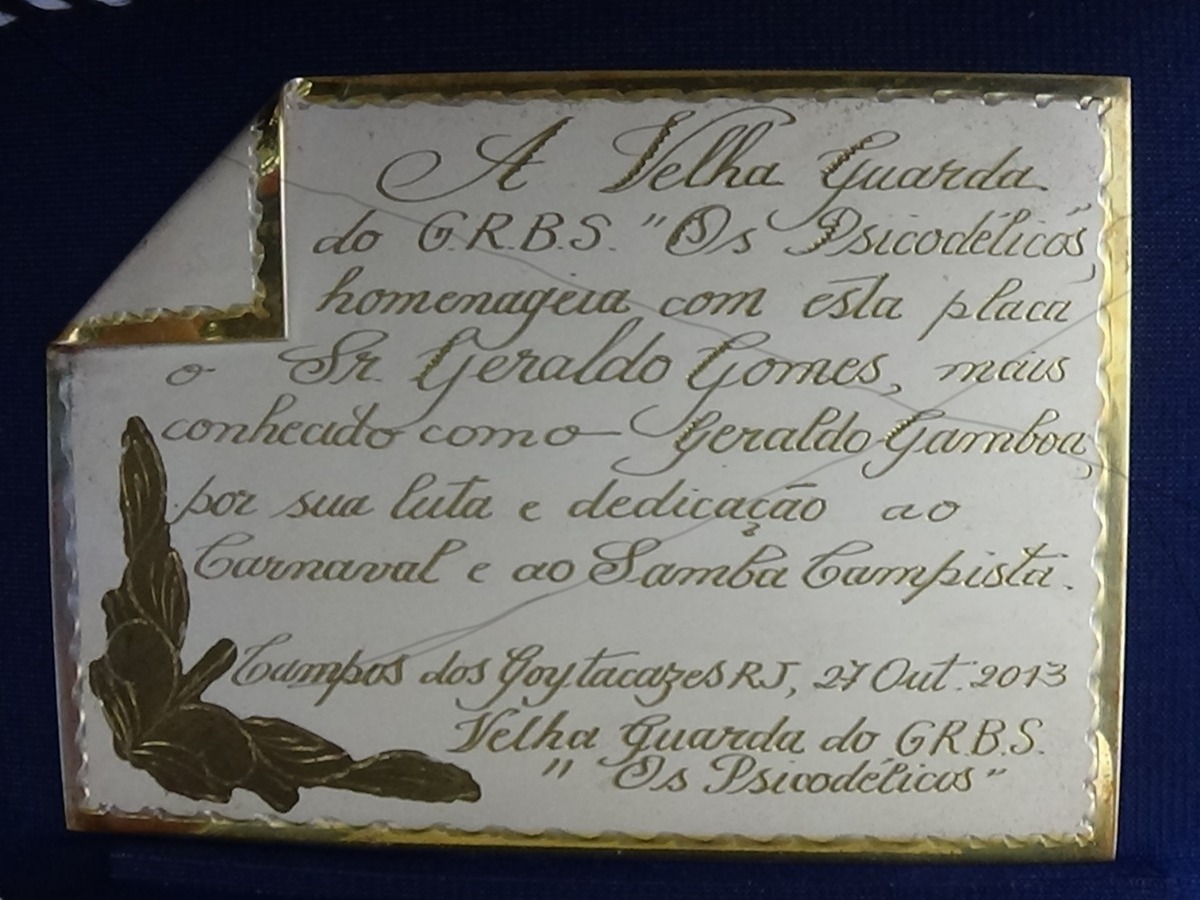 A Velha Guarda
do G.R.B.S. "Os Psicodélicos",
homenageia com esta placa
o Sr. Geraldo Gomes, mais
conhecido como Geraldo Gamboa,
por sua luta e dedicação ao
Carnaval e ao Samba Campista.
Campos dos Goytacazes RJ, 27 Out. 2013
Velha Guarda do G.R.B.S.
"Os Psicodélicos"